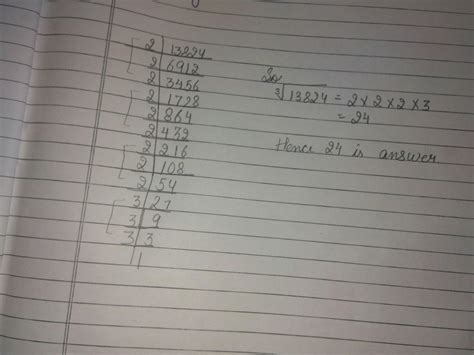 2 | 13824
2 | 6912
2 | 3456
2 | 1728
2 | 864
2 | 432
2 | 216
2 | 108
2 | 54
3 | 27
3 | 9
3 | 3
| 1
So
∛13824 = 2 × 2 × 2 × 3
= 24
Hence 24 is answer